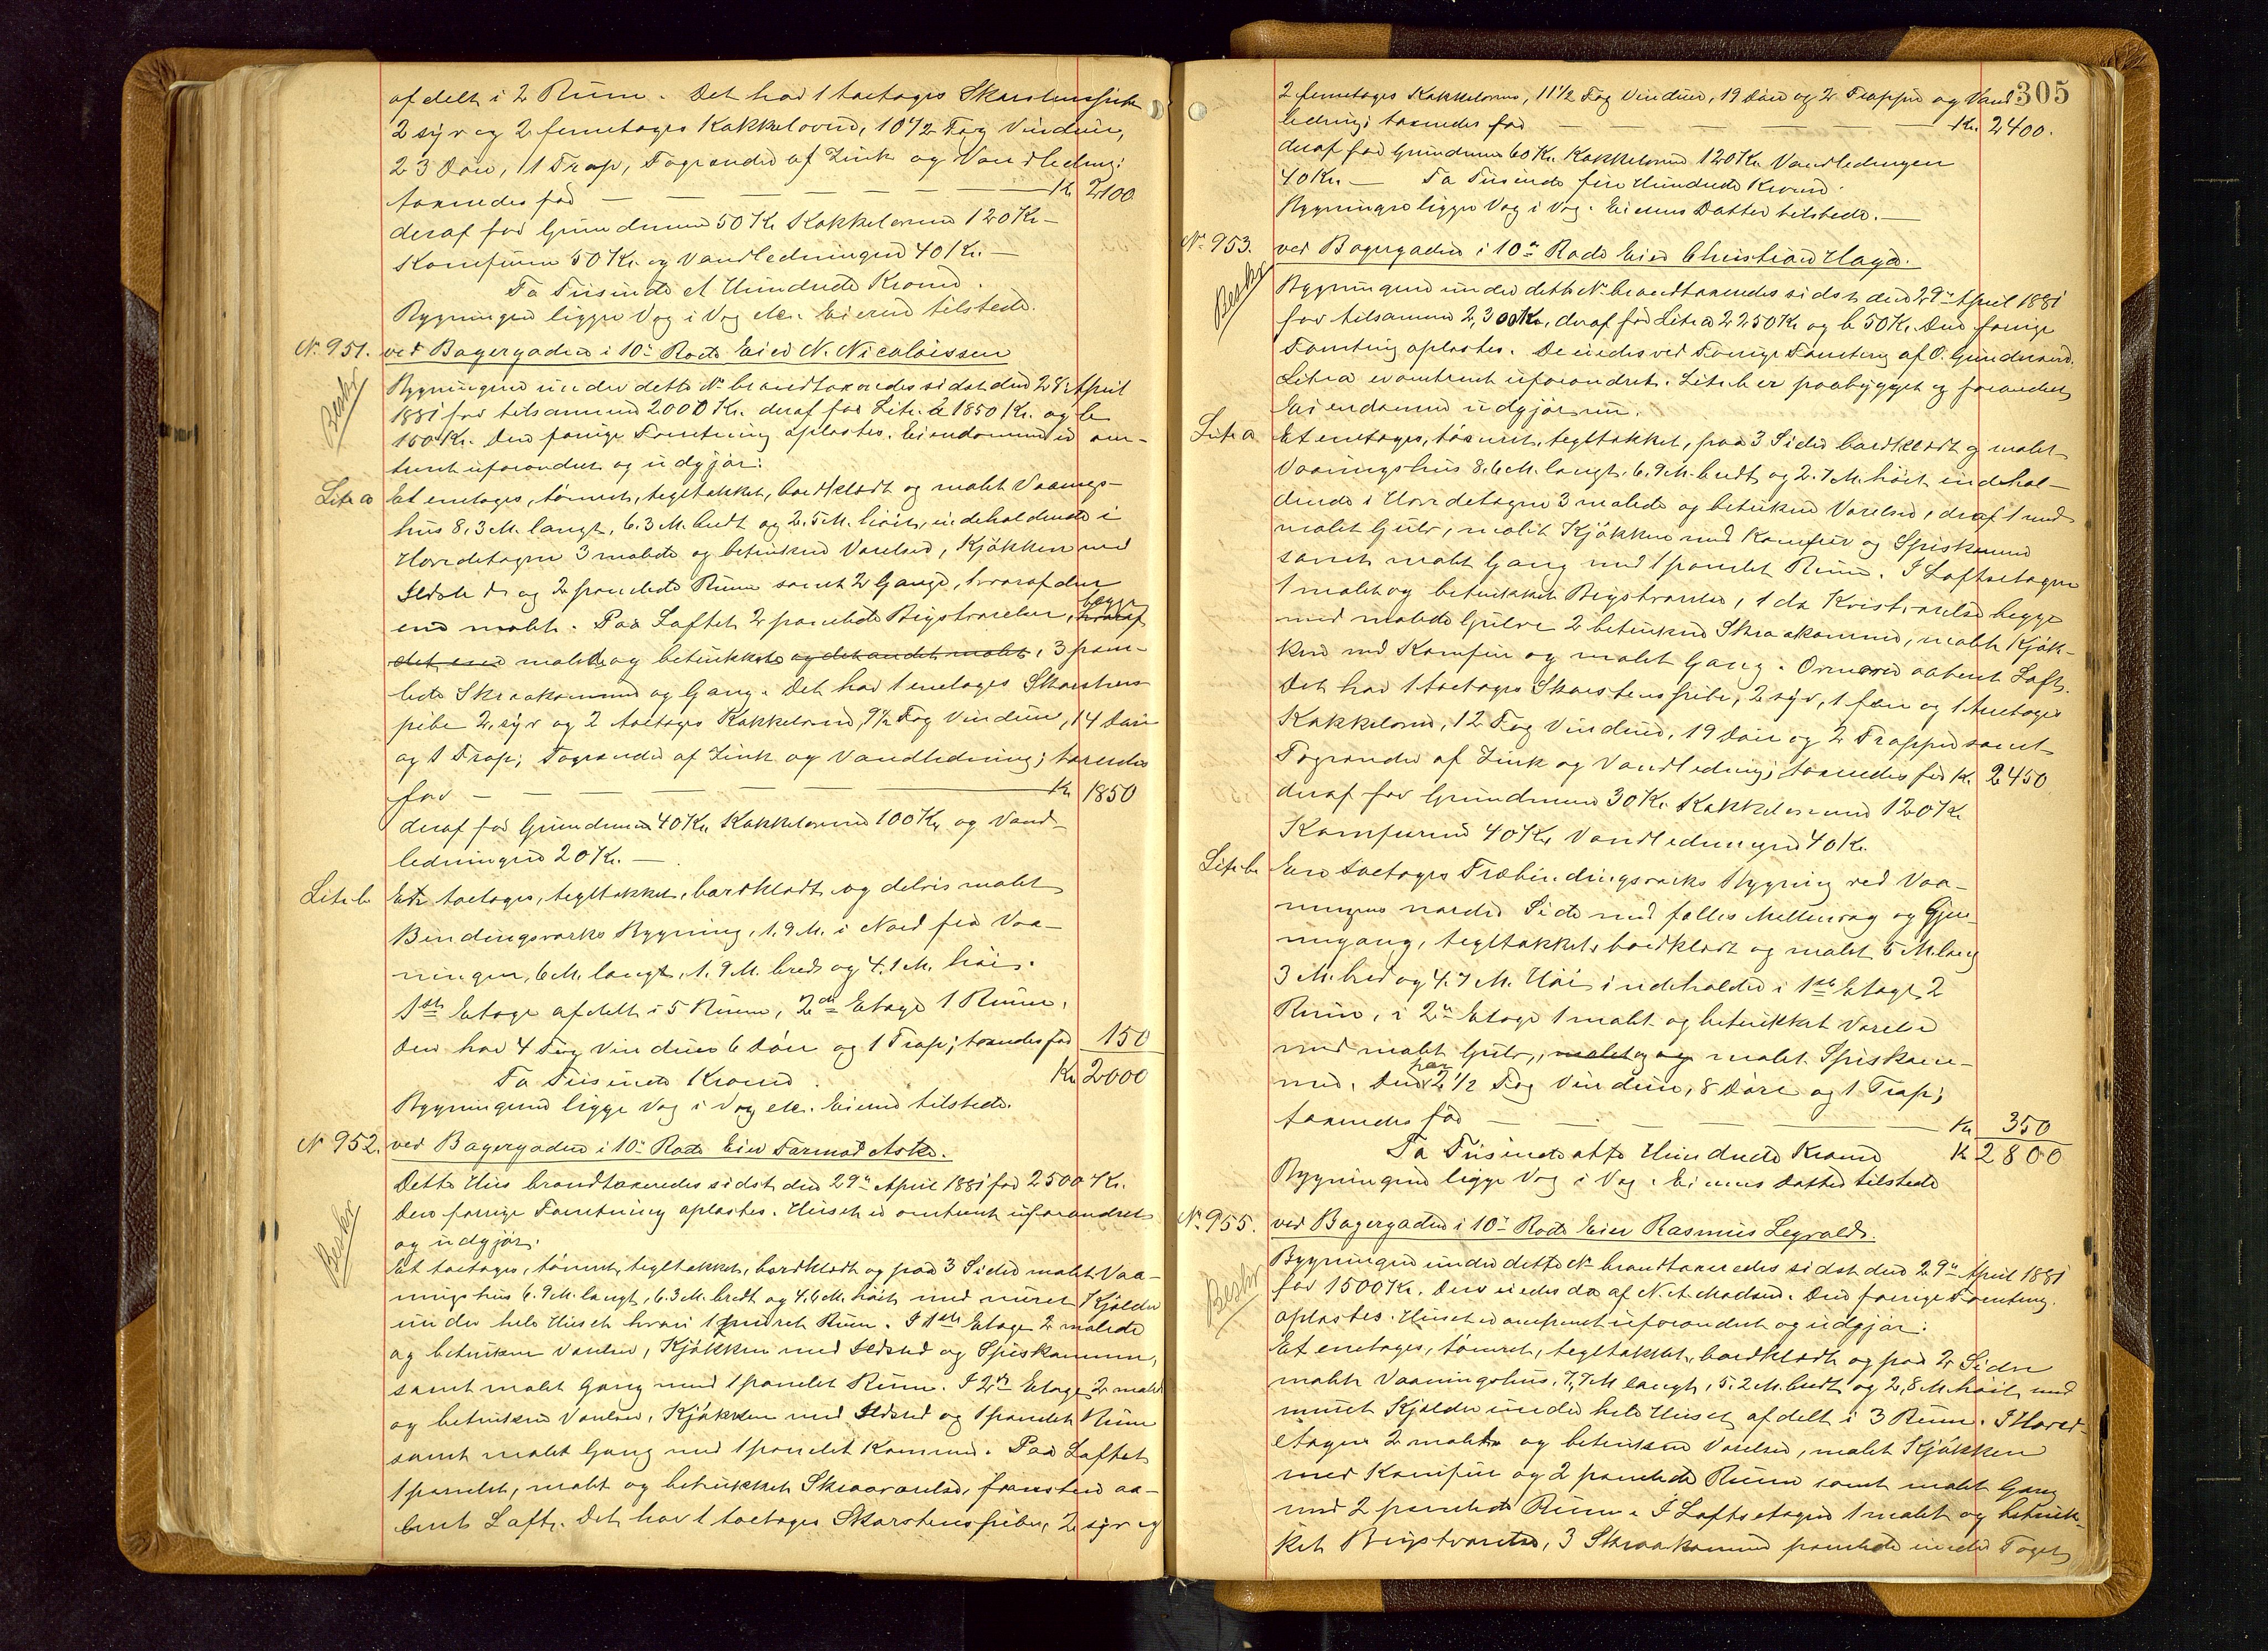 afdelt i 2 Rum. Det har 1 toetages Skorstenspibe
2 syv og 2 femetages Kakkelovne, 10 1/2 Fag Vinduer,
23 Døre, 1 Trap, Tagrender af Zink og Vandledning;
taxeredes for — — — — — Kr. 2100
deraf for Grundmuren 50 Kr Kakkelovnene 120 Kr —
Komfuren 50 Kr. og Vandledningen 40 Kr. —
To Tusinde et Hundrede Kroner.
Bygningen ligger Væg i Væg etc. Eieren tilstede.
No. 951. ved Bagergaden i 10de Rode Eier N. Nicolaissen
Beskr
Bygningerne under dette No brandtaxeredes sidst den 28de April
1881 for tilsammen 2000 Kr. deraf for Litr. a 1850 Kr. og b
150 Kr. Den forrige Forretning oplæstes. Eiendommen er om-
trent uforandret og udgjør:
Litr a Et enetages, tømret, tegltækket, bordklædt og malet Vaanings-
hus 8,3 M. langt, 6.3 M. bredt og 2.5 M. høit, indeholdende i
Hovedetagen 3 malede og betrukne Værelser, Kjøkken med
Ildsted og 2 panelede Rum samt 2 Gange, hvoraf den
ene malet. Paa Loftet 2 panelede Kvistværelser, hvoraf begge
det ene malede og betrukkede og det andet malet, 3 pane-
lede Skraakammere og Gang. Det har 1 enetages Skorstens
pibe 2 syv og 2 toetages Kakkelovne, 9 1/2 Fag Vinduer, 14 Døre
og 1 Trap; Tagrender af Zink og Vandledning; taxeredes
for — — — — — Kr 1850
deraf for Grundmuren 40 Kr. Kakkelovnene 100 Kr. og Vand-
ledningen 20 Kr. —
Litr b Et toetages, tegltækket, bordklædt og delvis malet
Bindingsværks Bygning, 1.9 M. i Nord fra Vaa-
ningen, 6 M. langt, 1.9 M. bred og 4.1 M. høi.
1ste Etage afdelt i 5 Rum, 2den Etage 1 Rum.
Den har 4 Fag Vinduer 6 Døre og 1 Trap; taxeredes for 150
To Tusinde Kroner. Kr 2000
Bygningerne ligge Væg i Væg etc. Eieren tilstede.
No 952. ved Bagergaden i 10de Rode Eier Tarmod Aske.
Beskr
Dette Hus brandtaxeredes sidst den 29de April 1881 for 2500 Kr.
Den forrige Forretning oplæstes. Huset er omtrent uforandret
og udgjør:
Et toetages, tømret, tegltækket, bordklædt og paa 3 Sider malet Vaa-
ningshus 6.9 M. langt, 6.3 M. bredt og 4.6 M. høit med muret Kjælder
under hele Huset hvori 1 muret Rum. I 1ste Etage 2 malede
og betrukne Værelser, Kjøkken med Ildsted og Spiskammer,
samt malet Gang med 1 panelet Rum. I 2den Etage 2 malede
og betrukne Værelser, Kjøkken med Ildsted og 1 panelet Rum
samt malet Gang med 1 panelet Kammer. Paa Loftet
1 panelet, malet og betrukket Skraaværelse, forøvrigt aa-
bent Loft. Det har 1 toetages Skorstenspibe, 2 syv og
305
2 femetages Kakkelovne, 11 1/2 Fag Vinduer, 19 Døre og 2 Trapper og Vand
ledning; taxeredes for — — — — Kr. 2400.
deraf for Grundmuren 60 Kr. Kakkelovnene 120 Kr. Vandledningen
40 Kr. — To Tusinde fire Hundrede Kroner.
Bygningen ligger Væg i Væg. Eierens Datter tilstede. —
No. 953. ved Bagergaden i 10de Rode Eier Christian Haga.
Beskr
Bygningerne under dette No brandtaxeredes sidst den 29de April 1881
for tilsammen 2,300 Kr. deraf for Litr a 2250 Kr og b 50 Kr. Den forrige
Forretning oplæstes. De eiedes ved forrige Forretning af O. Gundersen.
Litr a er omtrent uforandret. Litr. b er paabygget og forandret
Eiendommen udgjør nu.
Litr a Et enetages, tømret, tegltækket, paa 3 Sider bordklædt og malet
Vaaningshus 8.6 M. langt, 6.9 M. bredt og 2.7 M. høit, indehol-
dende i Hovedetagen 3 malede og betrukne Værelser, deraf 1 med
malet Gulv, malet Kjøkken med Komfur og Spiskammer
samt malet Gang med 1 panelet Rum. I Loftsetagen
1 malet og betrukket Kvistværelse, 1 do. Kvistværelse begge
med malede Gulve 2 betrukne Skraakammere, malet Kjøk-
ken med Komfur og malet Gang. Ovenover aabent Loft.
Det har 1 toetages Skorstenspibe, 2 syv, 1 fem og 1 toetages
Kakkelovne, 12 Fag Vinduer, 19 Døre og 2 Trapper samt
Tagrender af Zink og Vandledning; taxeredes for Kr. 2450
deraf for Grundmuren 30 Kr. Kakkelovnene 120 Kr
Komfurene 40 Kr Vandledningen 40 Kr.
Litr. b. En toetages Træbindingsværks Bygning ved Vaa-
ningens nordre Side med fælles Mellemvæg og Gjen-
nemgang, tegltækket, bordklædt og malet 5 M. lang
3 M. bred og 4.7 M. Høi indeholder i 1ste Etage 2
Rum, i 2den Etage 1 malet og betrukket Værelse
med malet Gulv, malet og og malet Spiskam-
mer. Den har 2 1/2 Fag Vinduer, 8 Døre og 1 Trap;
taxeredes for — — — — Kr 350
To Tusinde otte Hundrede Kroner Kr 2800
Bygningerne ligge Væg i Væg. Eierens Datter tilstede
No. 955. ved Bagergaden i 10de Rode Eier Rasmus Legvold.
Beskr
Bygningen under dette No brandtaxeredes sidst den 29de April 1881
for 1500 Kr. Den eiedes da af N. A. Madsen. Den forrige Forretning
oplæstes. Huset er omtrent uforandret og udgjør:
Et enetages, tømret, tegltækket, bordklædt og paa 2 Sider
malet Vaaningshus, 7,7 M langt, 5.2 M. bredt og 2,8 M høit, med
muret Kjælder under hele Huset, afdelt i 3 Rum. I Hoved-
etagen 2 malede og betrukne Værelser, malet Kjøkken
med Komfur og 2 panelede Rum samt malet Gang
med 2 panelede Rum. I Loftsetagen 1 malet og betruk-
ket Kvistværelse, 3 Skraakammere panelede under Taget